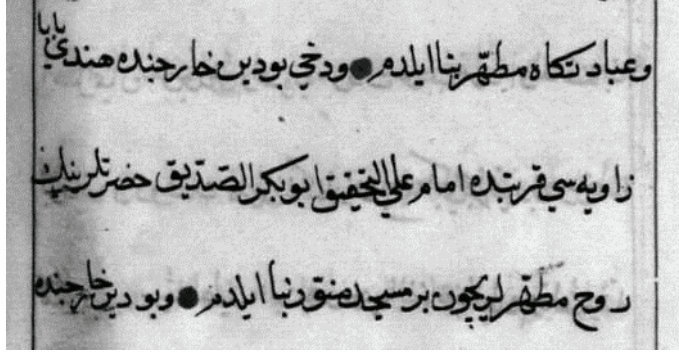 وعبادتكاه مطهّر بنا ايلدم ● ودخي بودين خارجنده هندي بابا
زاويه سي قربنده امام علي التحقيق ابو بكر الصّدّيق حضرتلرينك
روح مطهّرلريچون بر مسجد منوّر بنا ايلدم ● وبودين خارجنده